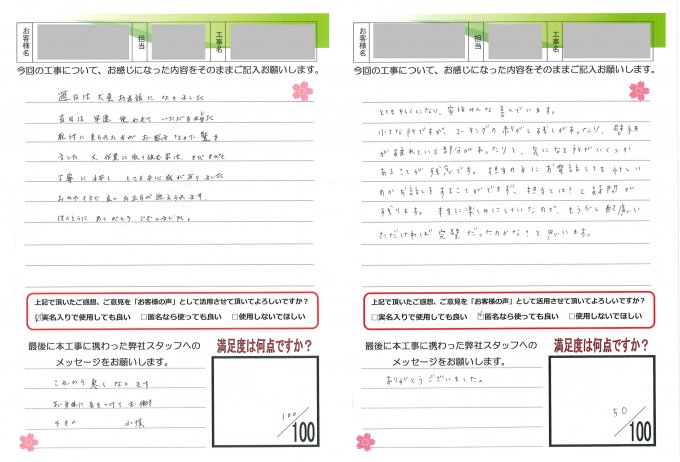 お客様名
担当
工事名
今回の工事について、お感じになった内容をそのままご記入お願いします。
過日は大変お世話になりました
当日は早速使わせていただきました
取付に来られた方がお若い方で驚き
ました
丁寧に
とても
ほんとうにありがとうございました。
上記で頂いたご感想、ご意見を「お客様の声」として活用させて頂いてよろしいですか?
☑実名入りで使用しても良い □匿名なら使っても良い □使用しないでほしい
最後に本工事に携わった弊社スタッフへの
メッセージをお願いします。
これから寒くなります
お身体に気をつけてお働き
下さい
満足度は何点ですか?
100/100
お客様名
担当
工事名
今回の工事について、お感じになった内容をそのままご記入お願いします。
とてもキレイになり、家族みんな喜んでいます。
小さな所ですが、コーキングの剥がし残しがあったり、壁紙
が離れている部分があったりと、気になる所がいくつか
あることが残念です。担当の方にお電話しても
のかお話しをすることができず、担当とは?と疑問が
残ります。本当に楽しみにしていたので、もう少し配慮い
ただければ完璧だったのかな?と思います。
上記で頂いたご感想、ご意見を「お客様の声」として活用させて頂いてよろしいですか?
□実名入りで使用しても良い ☑匿名なら使っても良い □使用しないでほしい
最後に本工事に携わった弊社スタッフへの
メッセージをお願いします。
ありがとうございました。
満足度は何点ですか?
50/100